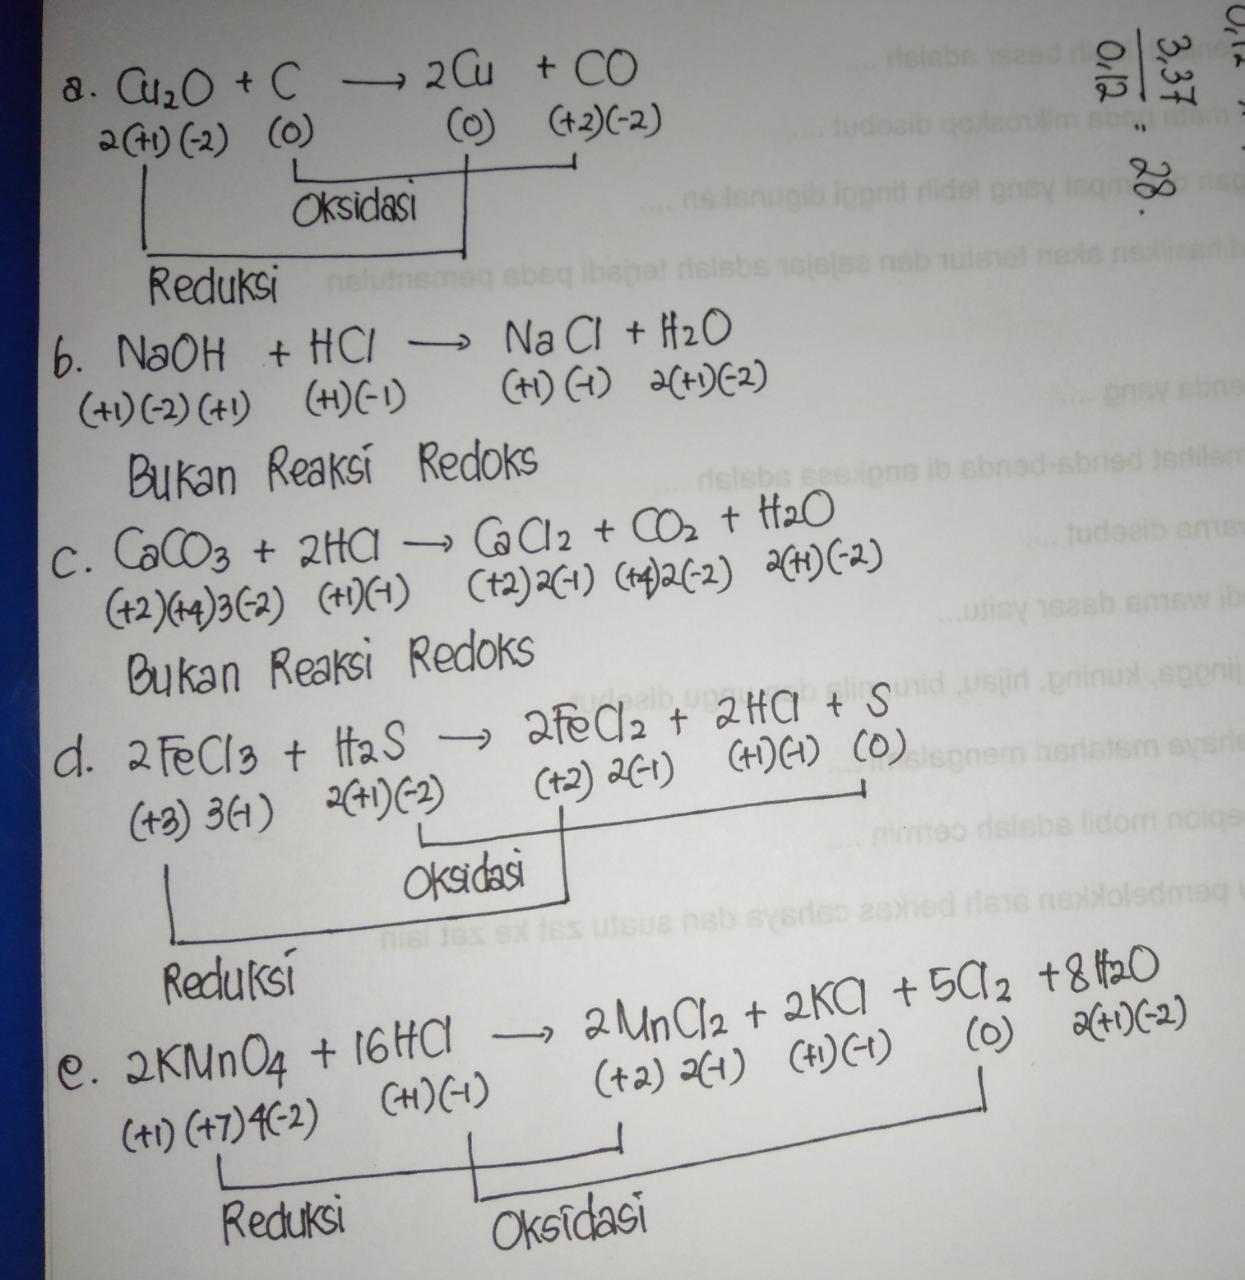 a. Cu2O + C → 2Cu + CO
2(+1)(-2) (0) (0) (+2)(-2)
Oksidasi
Reduksi
b. NaOH + HCl → NaCl + H2O
(+1)(-2)(+1) (+1)(-1) (+1)(-1) 2(+1)(-2)
Bukan Reaksi Redoks
c. CaCO3 + 2HCl → CaCl2 + CO2 + H2O
(+2)(+4)3(-2) (+1)(-1) (+2)2(-1) (+4)2(-2) 2(+1)(-2)
Bukan Reaksi Redoks
d. 2FeCl3 + H2S → 2FeCl2 + 2HCl + S
(+3) 3(-1) 2(+1)(-2) (+2) 2(-1) (+1)(-1) (0)
Oksidasi
Reduksi
e. 2KMnO4 + 16HCl → 2MnCl2 + 2KCl + 5Cl2 + 8H2O
(+1)(+7)4(-2) (+1)(-1) (+2) 2(-1) (+1)(-1) (0) 2(+1)(-2)
Reduksi Oksidasi
3,37
0,12 = 28.